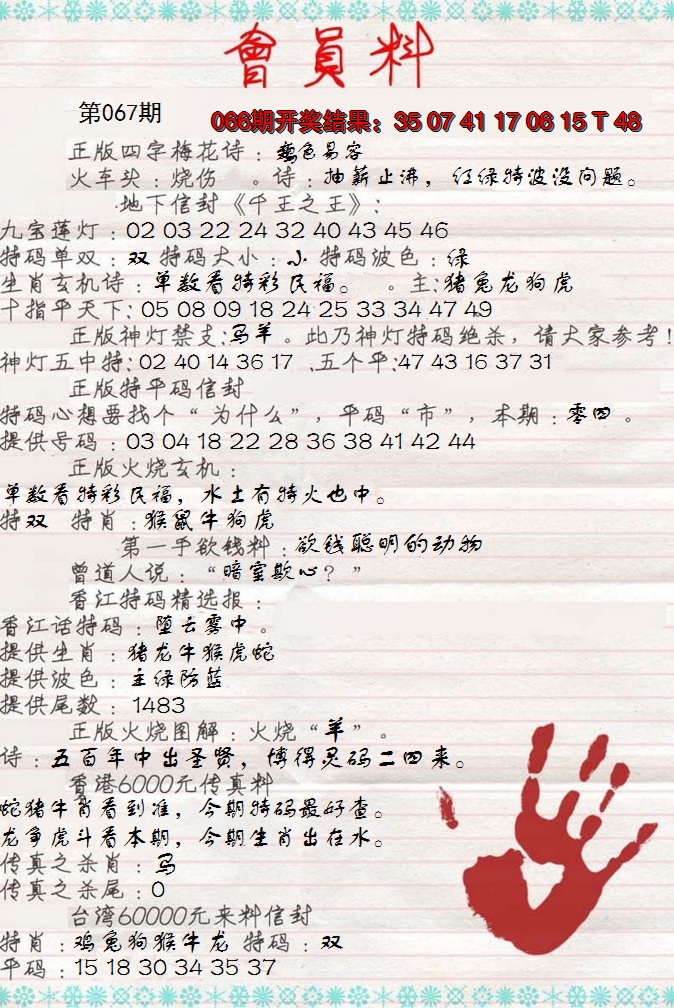 會員料
第067期
066期开奖结果：35 07 41 17 06 15 T 48
正版四字梅花诗：勃色易容
火车头：烧伤 。诗：抽薪止沸，红绿特波没问题。
地下信封《千王之王》：
九宝莲灯：02 03 22 24 32 40 43 45 46
特码单双：双 特码大小：小 特码波色：绿
生肖玄机诗：单数看特彩民福。 。主:猪兔龙狗虎
十指平天下：05 08 09 18 24 25 33 34 47 49
正版神灯禁支:马羊 。此乃神灯特码绝杀，请大家参考!
神灯五中特:02 40 14 36 17 .五个平:47 43 16 37 31
正版特平码信封
特码心想要找个“为什么”，平码“市”，本期：零四 。
提供号码：03 04 18 22 28 36 38 41 42 44
正版火烧玄机：
单数看特彩民福，水土有特火也中。
特双 特肖：猴鼠牛狗虎
第一手欲钱料：欲钱聪明的动物
曾道人说：“暗室欺心？”
香江特码精选报：
香江话特码：堕云雾中 。
提供生肖：猪龙牛猴虎蛇
提供波色：主绿防蓝
提供尾数：1483
正版火烧图解：火烧“羊”。
诗：五百年中出圣贤，博得灵码二四来。
香港6000元传真料
蛇猪牛肖看到准，今期特码最好查。
龙争虎斗看本期，今期生肖出在水。
传真之杀肖：马
传真之杀尾：0
台湾60000元来料信封
特肖：鸡兔狗猴牛龙 特码：双
平码：15 18 30 34 35 37